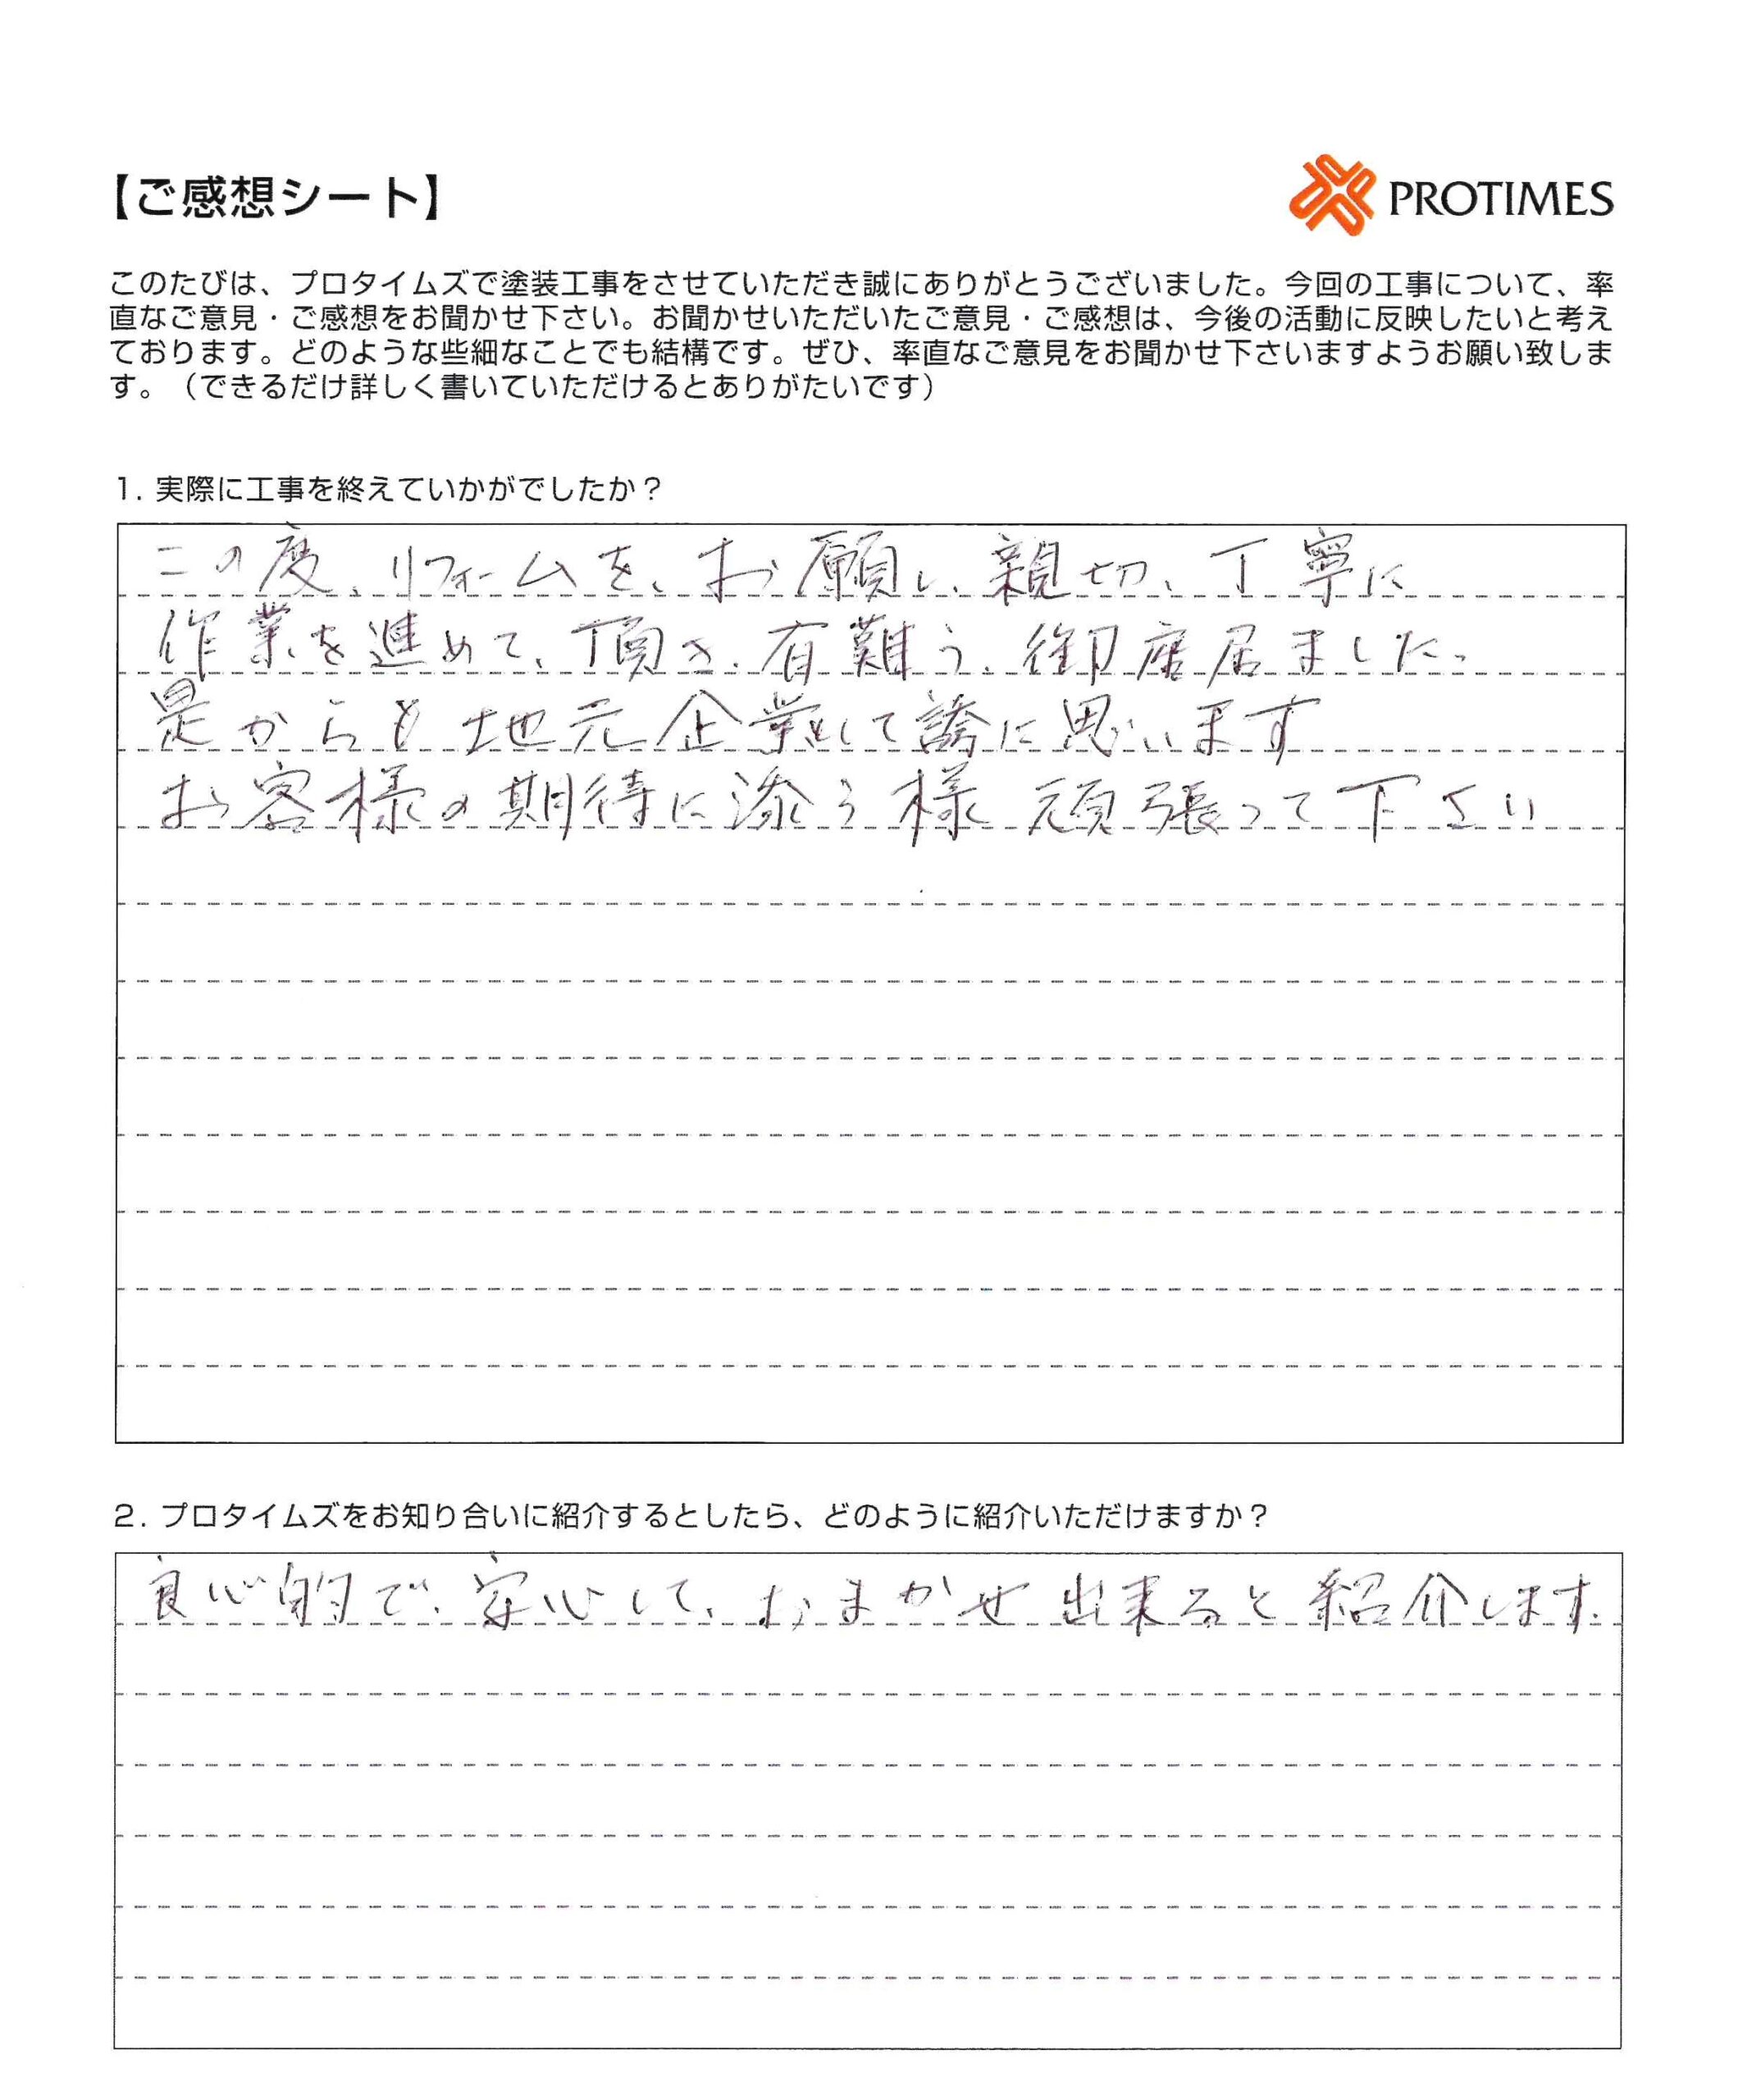 【ご感想シート】
PROTIMES
このたびは、プロタイムズで塗装工事をさせていただき誠にありがとうございました。今回の工事について、率
直なご意見・ご感想をお聞かせ下さい。お聞かせいただいたご意見・ご感想は、今後の活動に反映したいと考え
ております。どのような些細なことでも結構です。ぜひ、率直なご意見をお聞かせ下さいますようお願い致しま
す。（できるだけ詳しく書いていただけるとありがたいです）
1. 実際に工事を終えていかがでしたか？
この度、リフォームを、お願い、親切、丁寧に
作業を進めて、頂き、有難う、御座居ました。
是からも地元企業として誇に思います
お客様の期待に添う様 頑張って下さい
2. プロタイムズをお知り合いに紹介するとしたら、どのように紹介いただけますか？
良心的で、安心して、おまかせ出来ると紹介します。